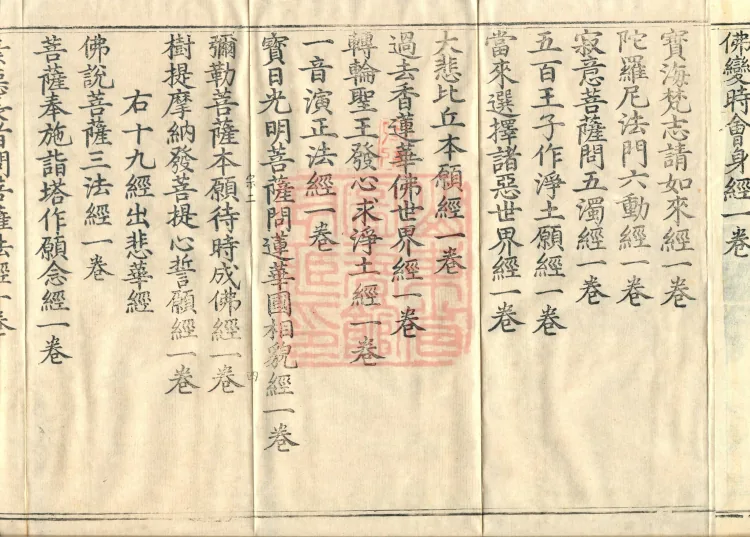 佛變時會身經一卷
寶海梵志請如來經一卷
陀羅尼法門六動經一卷
寂意菩薩問五濁經一卷
五百王子作淨土願經一卷
當來選擇諸惡世界經一卷
大悲比丘本願經一卷
過去香蓮華佛世界經一卷
轉輪聖王發心求淨土經一卷
一音演正法經一卷
寶日光明菩薩問蓮華國相貌經一卷
宗二
四
彌勒菩薩本願待時成佛經一卷
樹提摩納發菩提心誓願經一卷
右十九經出悲華經
佛說菩薩三法經一卷
菩薩奉施詣塔作願念經一卷
菩薩法經一卷